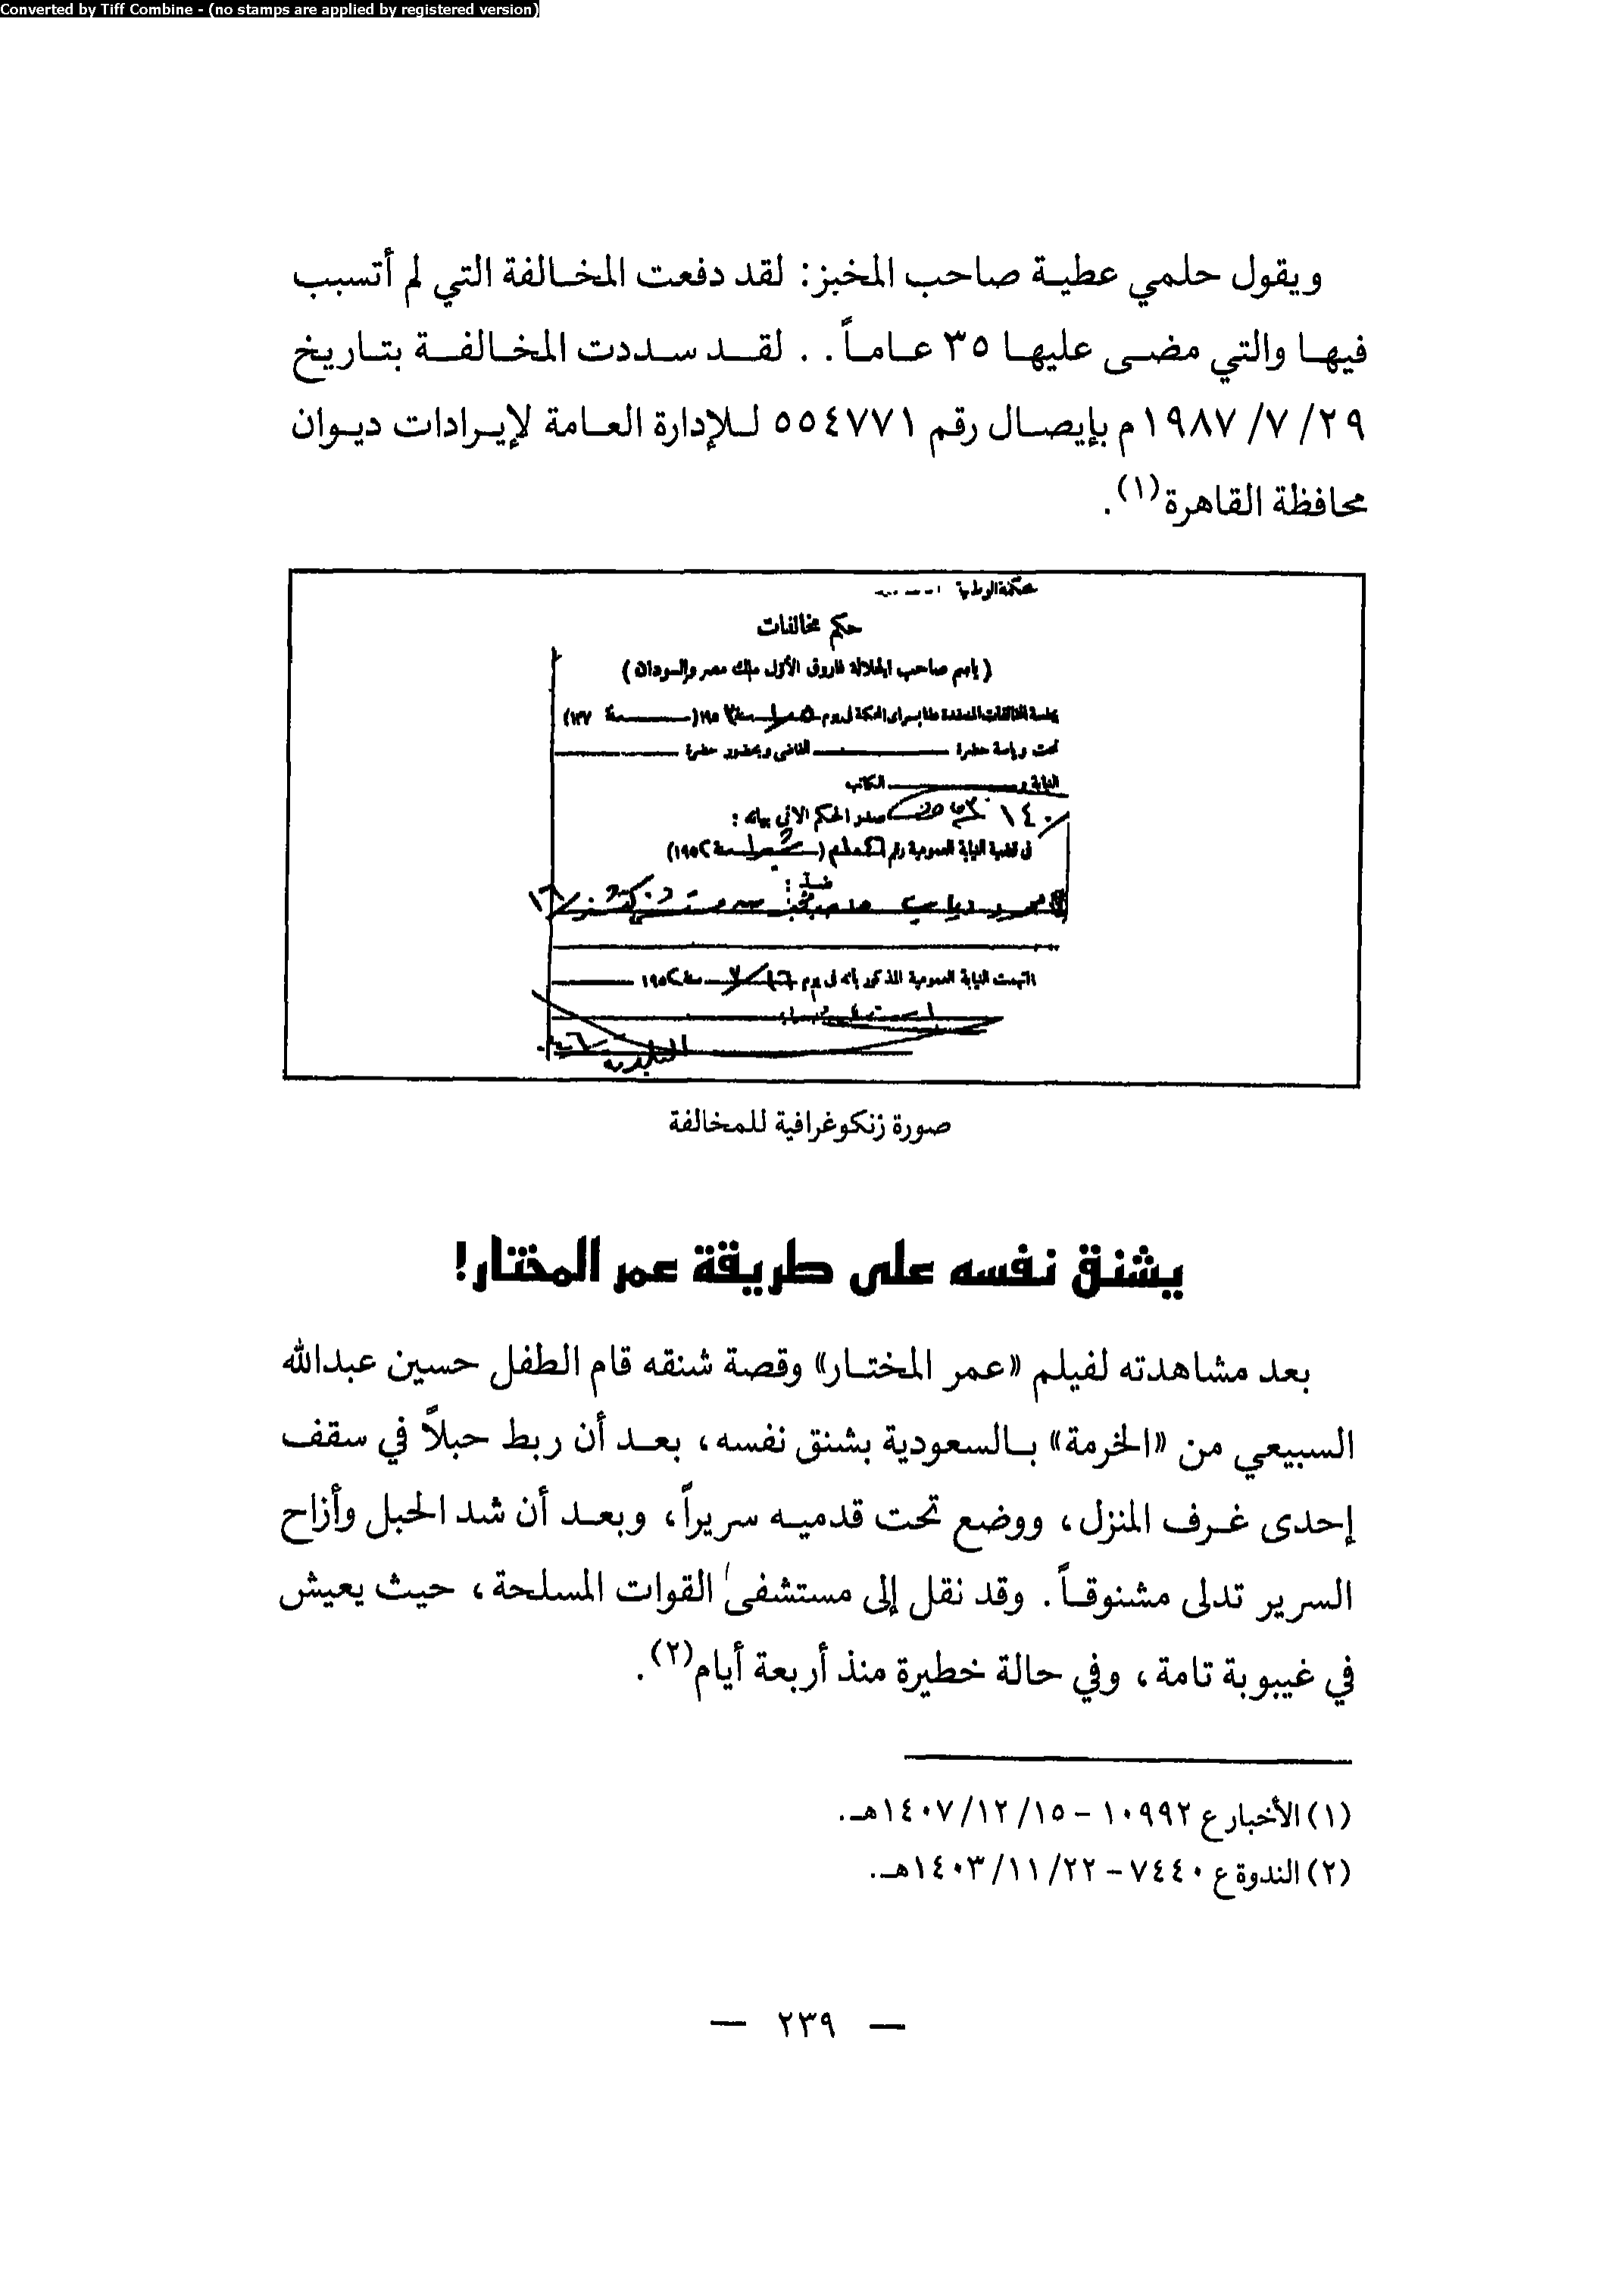 Converted by Tiff Combine - (no stamps are applied by registered version)
ويقول حلمي عطية صاحب المخبز: لقد دفعت المخالفة التي لم أتسبب
فيها والتي مضى عليها ٣٥ عاماً.. لقد سددت المخالفة بتاريخ
٢٩/ ٧/ ١٩٨٧م بإيصال رقم ٥٥٤٧٧١ للإدارة العامة لإيرادات ديوان
محافظة القاهرة(١).
محكمة الوطنية
حكم مخالفات
(باسم صاحب الجلالة فاروق الأول ملك مصر والسودان)
بجلسة المخالفات المنعقدة علنا بسراى المحكمة فى يوم
تحت رياسة حضرة القاضى وبحضور حضرة
النيابة و الكاتب
صدر الحكم الآتى بيانه:
فى قضية النيابة العمومية رقم
ضد:
اتهمت النيابة العمومية المذكور بأنه فى يوم ١٦/٧ سنة ١٩٥٢
صورة زنكوغرافية للمخالفة
يشنق نفسه على طريقة عمر المختار!
بعد مشاهدته لفيلم «عمر المختار» وقصة شنقه قام الطفل حسين عبدالله
السبيعي من «الخرمة» بالسعودية بشنق نفسه، بعد أن ربط حبلاً في سقف
إحدى غرف المنزل، ووضع تحت قدميه سريراً، وبعد أن شد الحبل وأزاح
السرير تدلى مشنوقاً. وقد نقل إلى مستشفى القوات المسلحة، حيث يعيش
في غيبوبة تامة، وفي حالة خطيرة منذ أربعة أيام(٢).
(١) الأخبار ع ١٠٩٩٢ - ١٥/ ١٢/ ١٤٠٧هـ.
(٢) الندوة ع ٧٤٤٠ - ٢٢/ ١١/ ١٤٠٣هـ.
— ٢٣٩ —